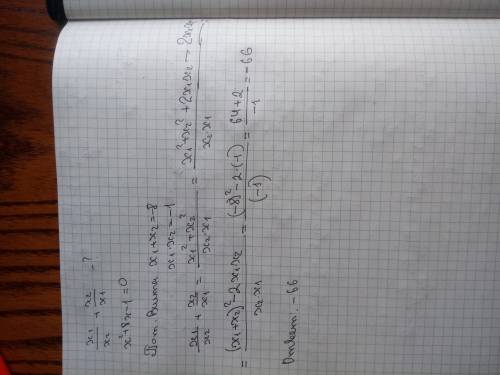 x₁/x₂ + x₂/x₁ = ?
x²+8x-1=0
По т. Виета x₁+x₂=-8
x₁·x₂=-1
x₁/x₂ + x₂/x₁ = (x₁²+x₂²)/(x₂·x₁) = (x₁²+x₂²+2x₁x₂-2x₁x₂)/(x₂·x₁) =
= ((x₁+x₂)²-2x₁x₂)/(x₂·x₁) = ((-8)²-2·(-1))/(-1) = (64+2)/-1 = -66
Ответ: -66